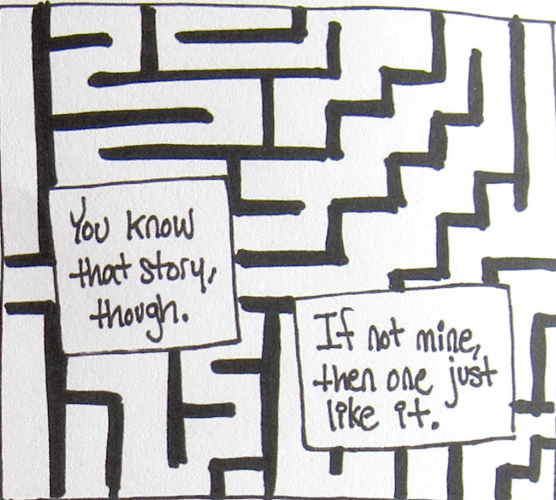 You know
that story,
though.
If not mine,
then one just
like it.